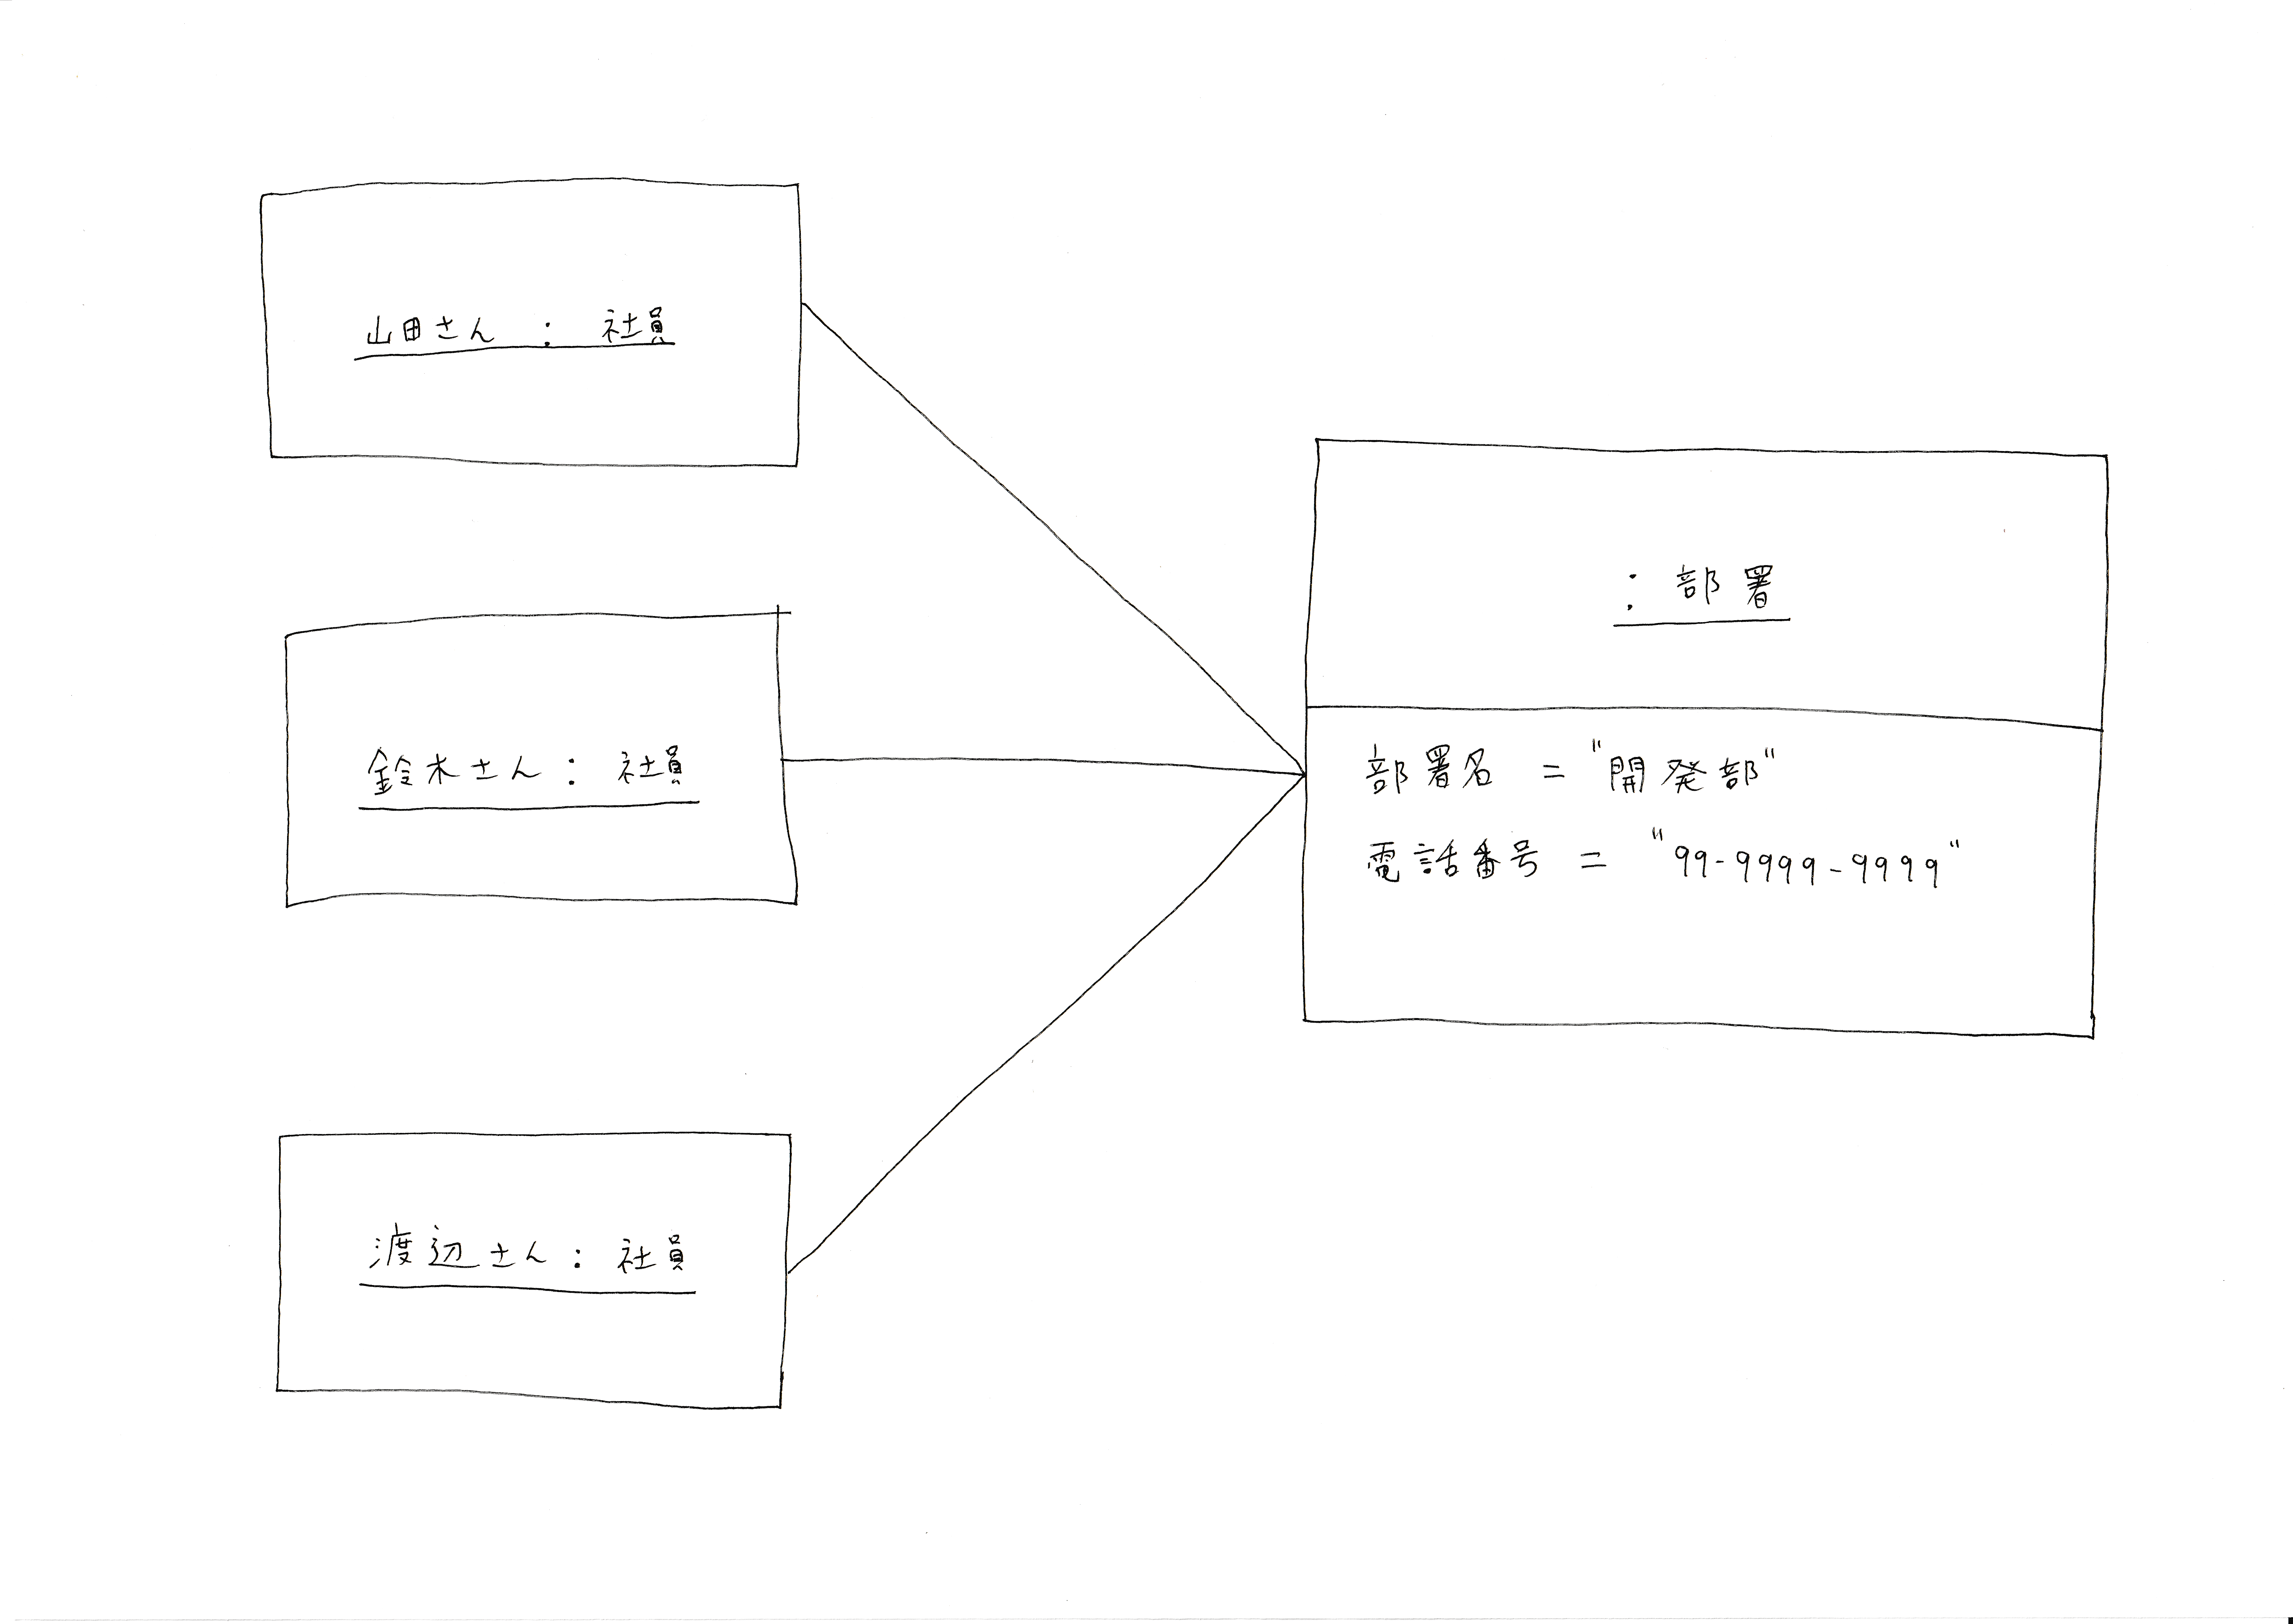 山田さん : 社員
鈴木さん : 社員
渡辺さん : 社員
: 部署
部署名 = "開発部"
電話番号 = "99-9999-9999"